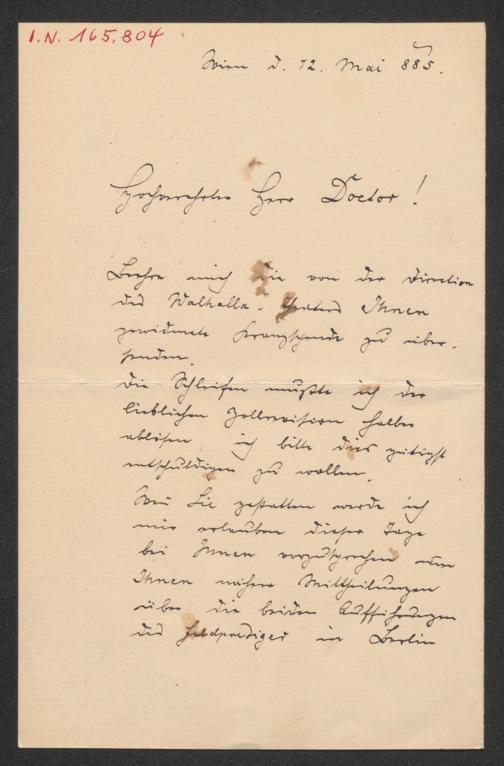 I.N. 165.804
Wien d. 12. Mai 885.
Hochverehrter Herr Doctor!
Beehre mich die von der Direction
des Walhalla-Theaters Ihnen
gewidmete Kranzspende zu über-
senden.
Die Schleifen mußte ich der
lieblichen Zollrevision halber
ablösen, ich bitte dies gütigst
entschuldigen zu wollen.
Wen Sie gestatten werde ich
mir erlauben dieser Tage
bei Ihnen vorzusprechen um
Ihnen nähere Mittheilungen
über die beiden Aufführungen
des Feldprediger in Berlin